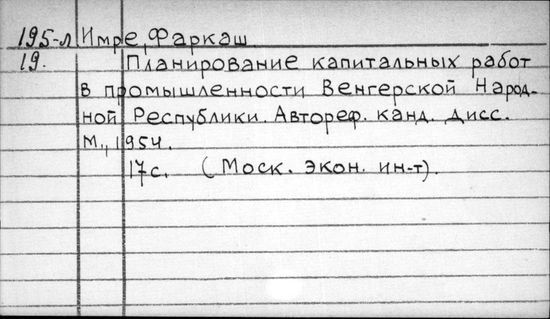 195-л Имре, Фаркаш
19. Планирование капитальных работ
в промышленности Венгерской Народ-
ной Республики. Автореф. канд. дисс.
М., 1954.
17с. (Моск. экон. ин-т).